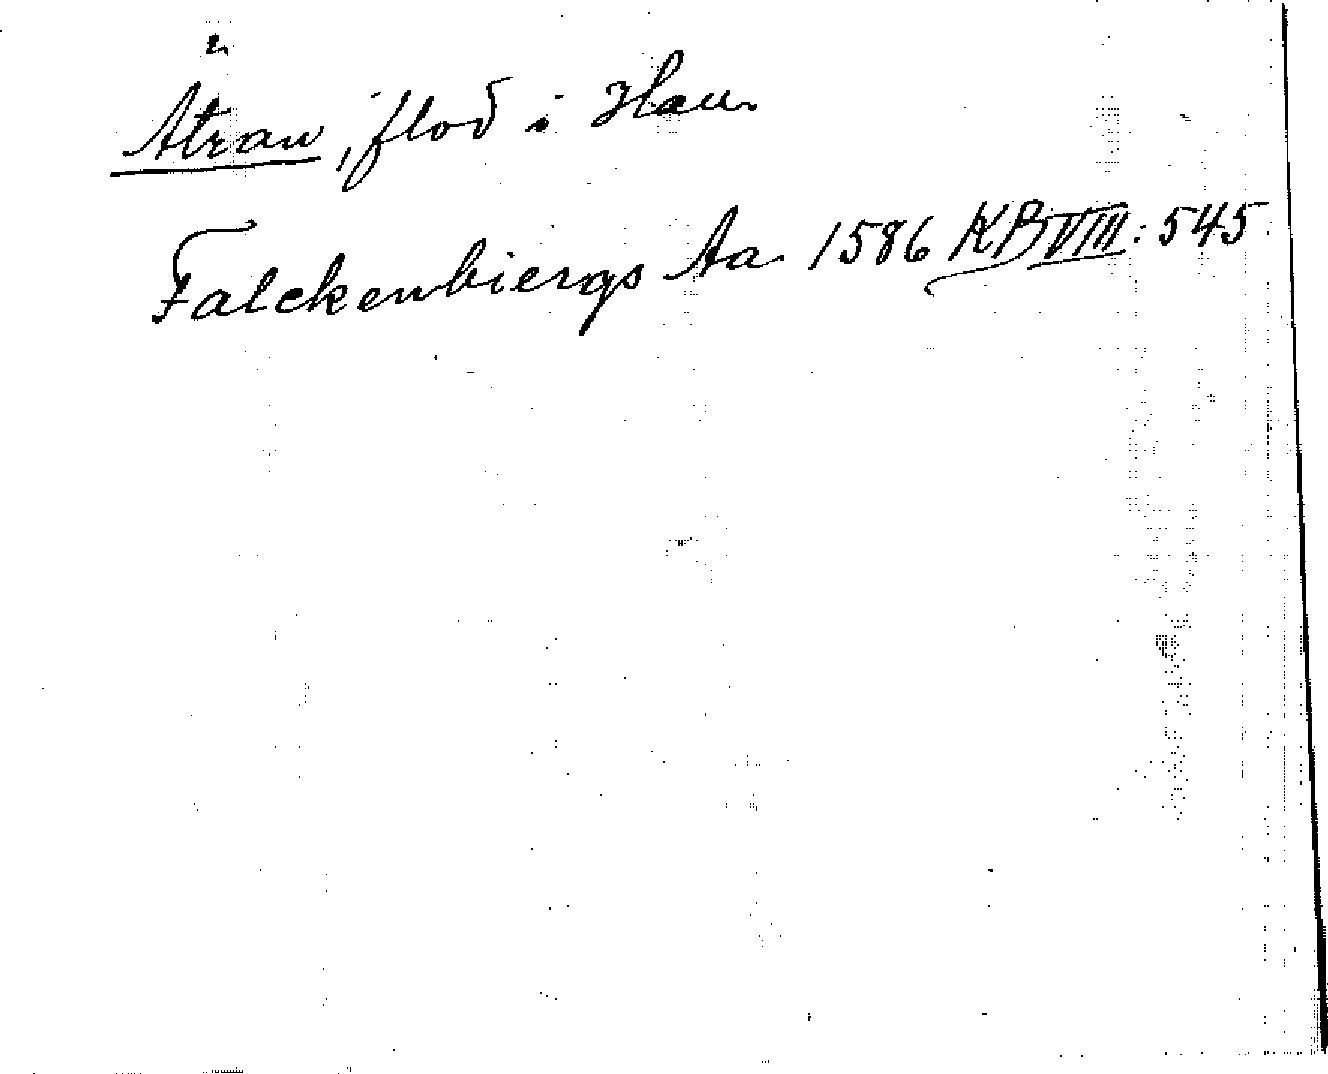 Ätran, flod i Hall.
Falckenbiergs Aa 1586 KB VIII: 545